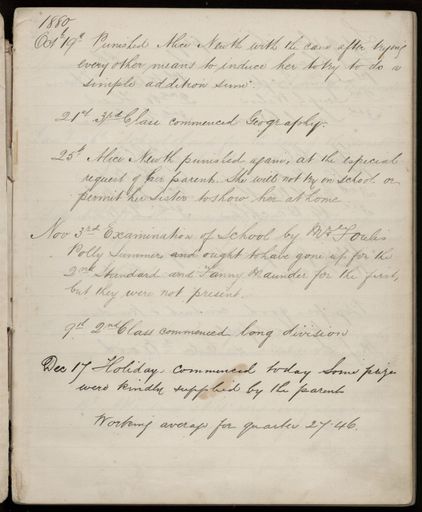 1880
Oct 19th Punished Alice Newth with the cane after trying
every other means to induce her to try to do a
simple addition sum.
21st 3rd Class commenced Geography.
25th Alice Newth punished again, at the especial
request of her parent. She will not try in school or
permit her sister to show her at home
Nov 3rd Examination of School by Mr Foulis
Polly Summer and ought to have gone up for the
2nd Standard and Fanny Maunder for the first,
but they were not present.
9th 2nd Class commenced long division
Dec 17 Holidays commenced today Some prizes
were kindly supplied by the parents
Working average for quarter 27.46.